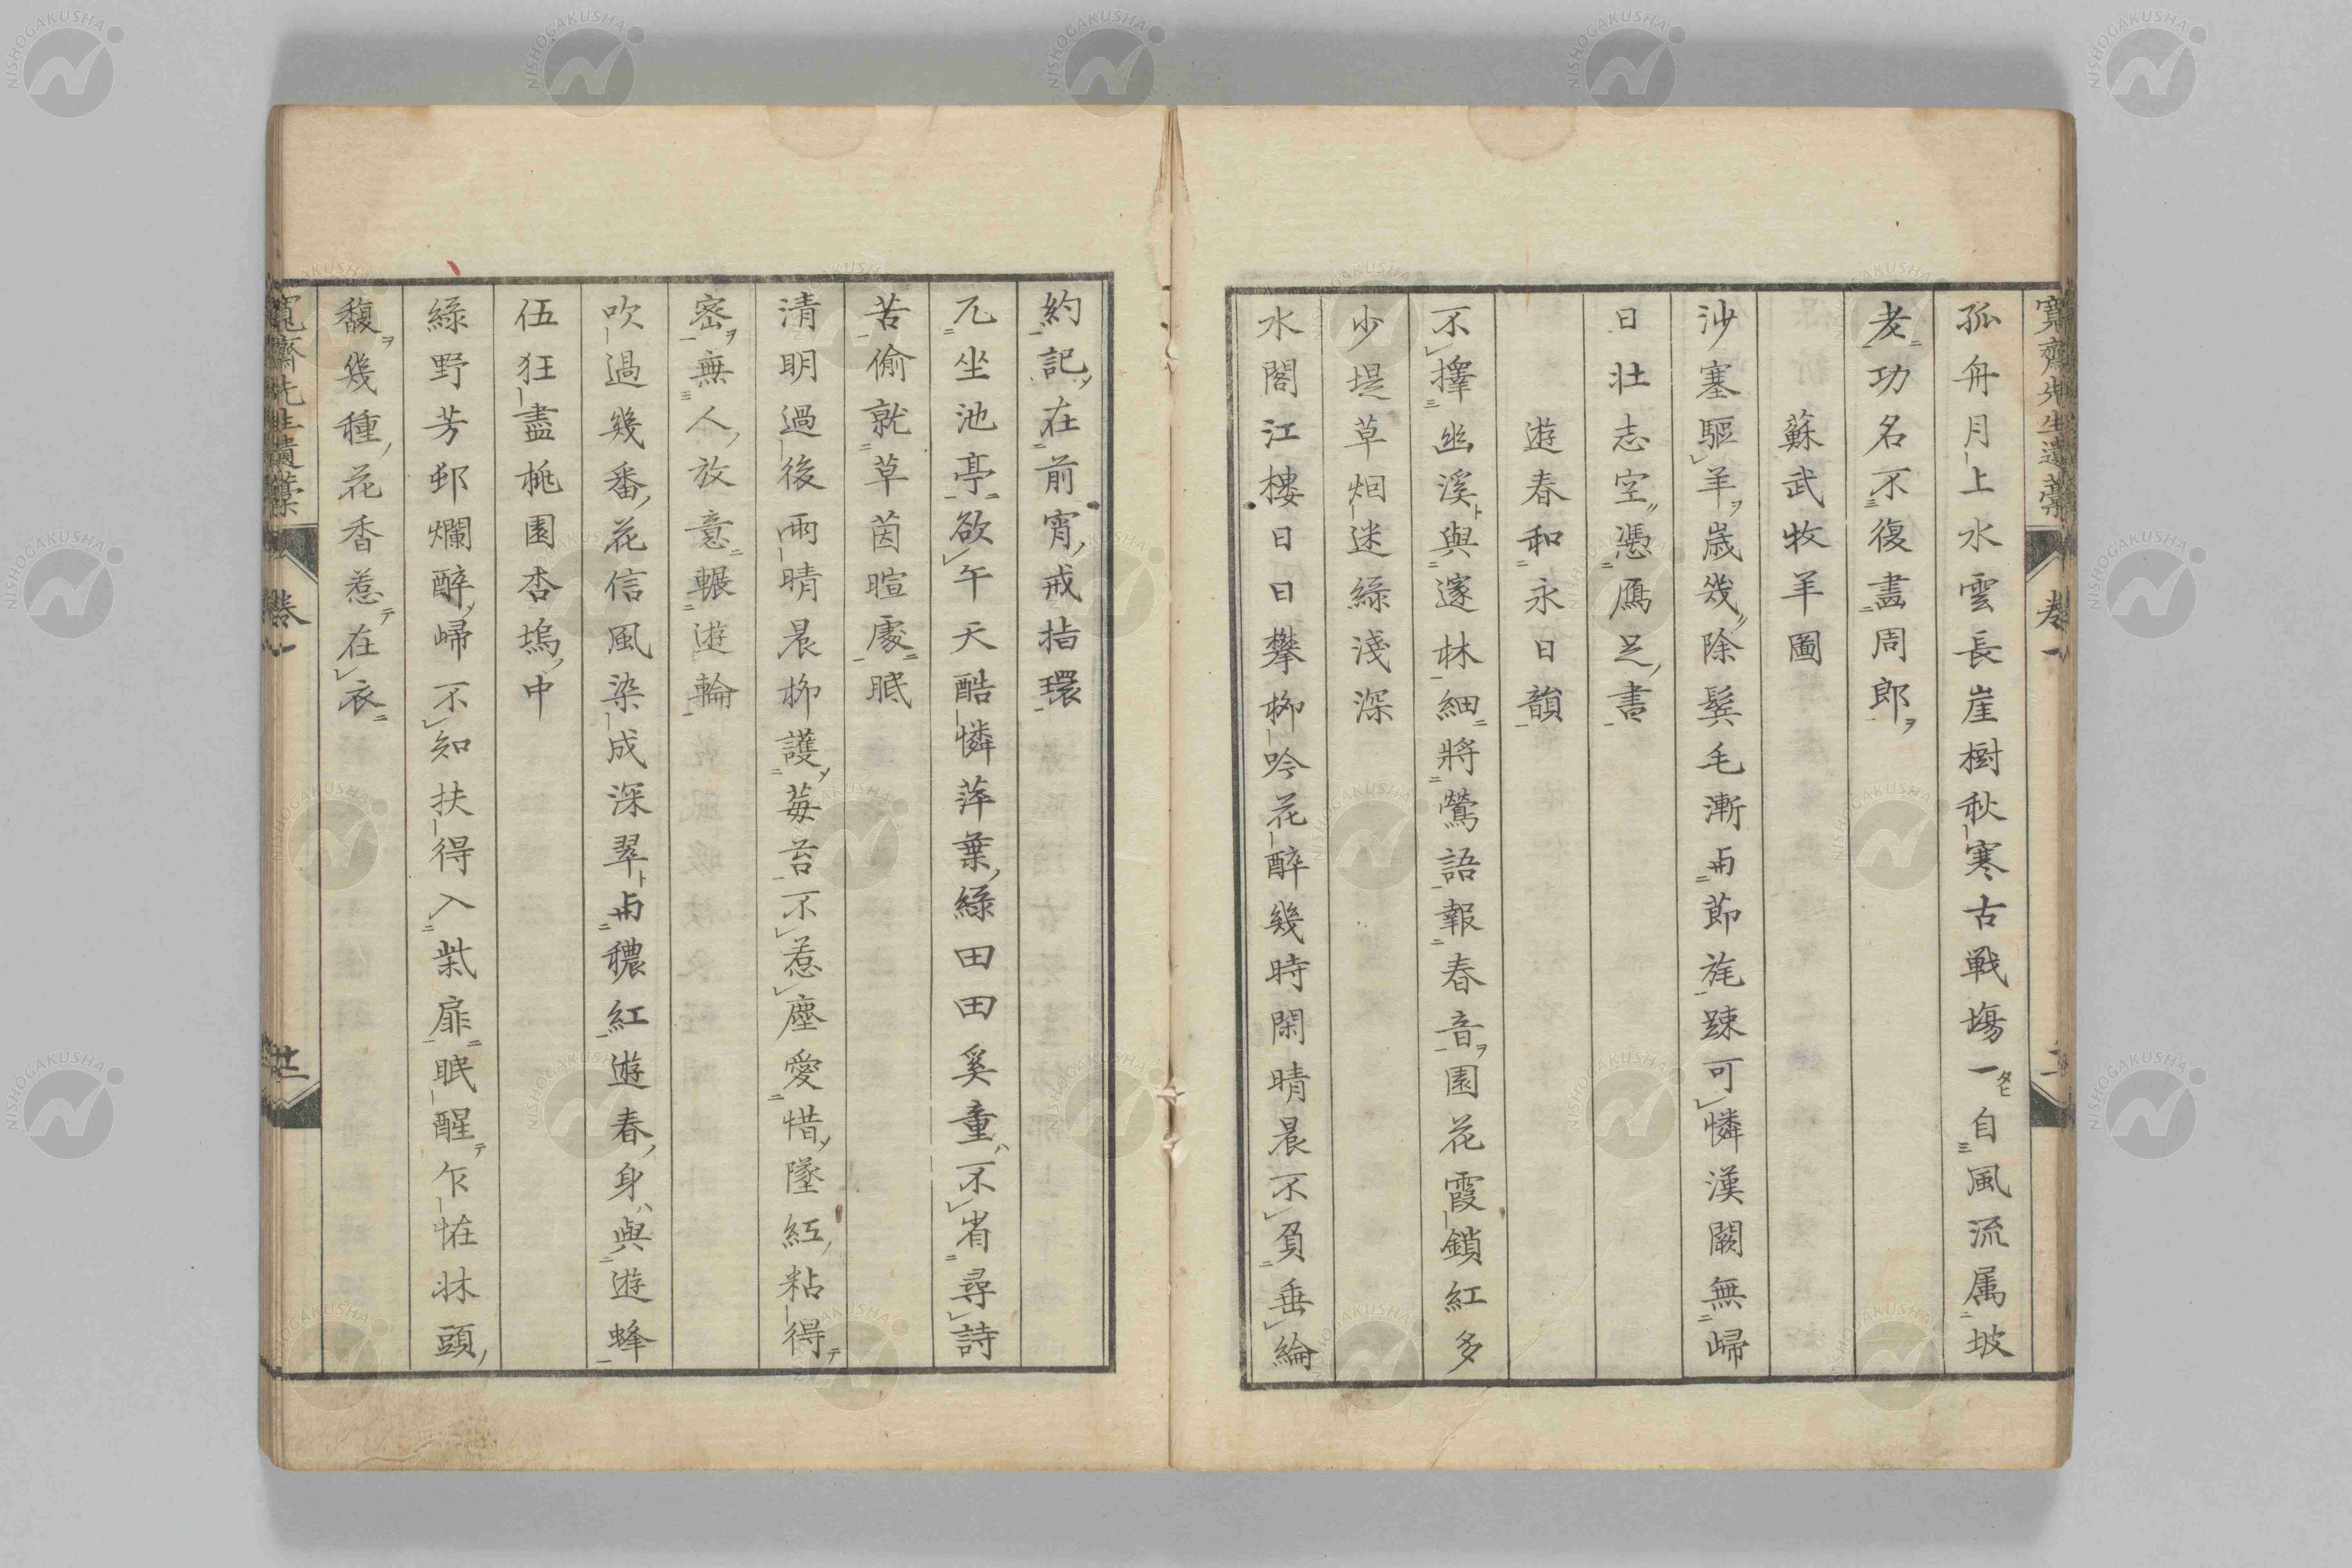 寛齋先生遺藁 巻一
孤舟月上水雲長崖樹秋寒古戦場一自風流属坡
老功名不復畫周郎
蘇武牧羊圖
沙塞驅羊歳幾除鬂毛漸与節旄踈可憐漢闕無歸
日壯志空憑鴈足書
遊春和永日韻
不擇幽溪與邃林細將鶯語報春音園花霞鎖紅多
少堤草烟迷綠淺深
水閣江樓日日攀柳吟花醉幾時閑晴晨不負垂綸
約記在前宵戒指環
兀坐池亭欲午天酷憐萍葉綠田田奚童不省尋詩
苦偷就草茵暄處眠
清明過後雨晴晨柳護莓苔不惹塵愛惜墜紅粘得
密無人放意輾遊輪
吹過幾番花信風染成深翠与穠紅遊春身與遊蜂
伍狂盡桃園杏塢中
綠野芳邨爛醉歸不知扶得入柴扉眠醒乍怪牀頭
馥幾種花香惹在衣
寛齋先生遺藁 巻一 廿一
NISHOGAKUSHA